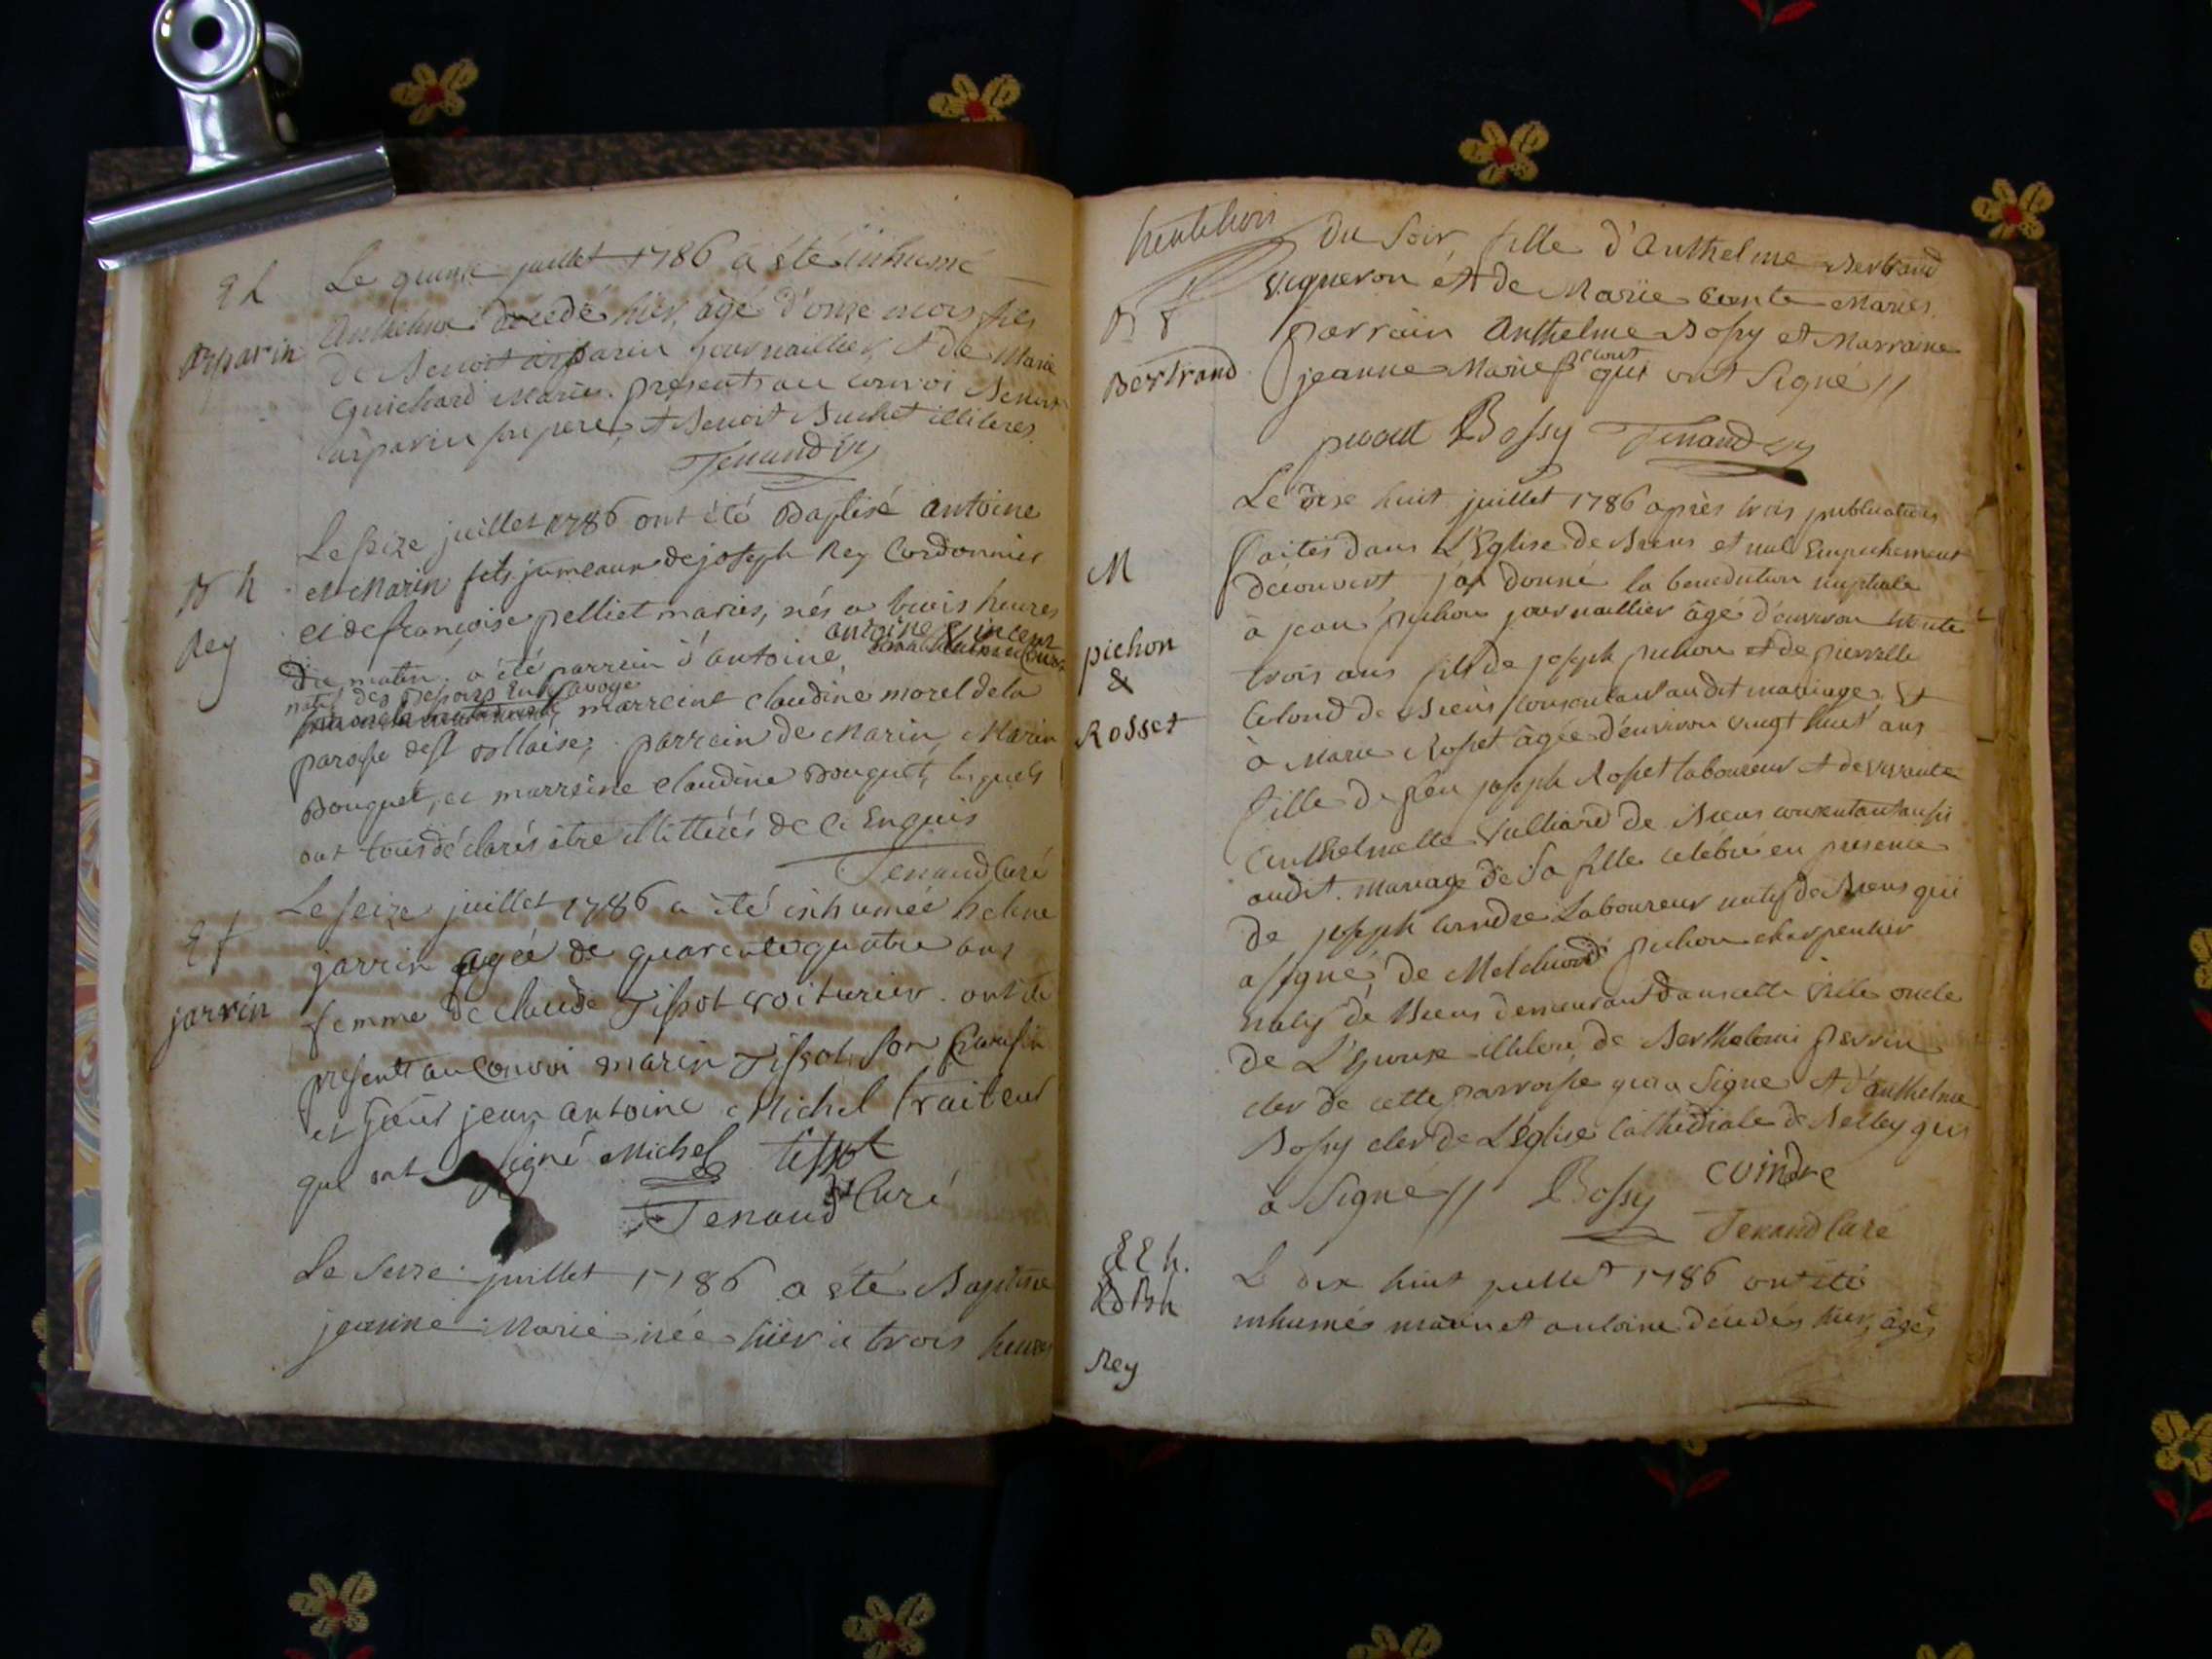 E h
Arparin
Le quinze juillet 1786 a été inhumé
Anthelme décédé hier, agé d'onze mois fils
de Benoit arparin journaillier et de Marie
Guichard Mariés. presents au convoi Benoit
arparin son pere, et Benoit Buchet illiteres.
Tenand
B h
Rey
Le seize juillet 1786 ont été Baptisé antoine
et Marin fils jumeaux de joseph Rey Cordonnier
et de françoise pelliet mariés, nés a trois heures
du matin. a été parrein d'antoine, antoine Vincent
natif des Deserts en Savoye
marreine claudine morel de la
paroisse de st ollaise, parrain de Marin, Marin
Bouquet, et marreine claudine Bouquet, lesquels
ont tous déclarés être illitterés de ce Enquis
Tenand Curé
E f
jarrin
Le seize juillet 1786 a été inhumée helene
jarrin agée de quarente quatre ans
femme de claude Tissot voiturier. ont été
present au Convoi marin Tissot son
et sieur jean antoine Michel traiteur
qui ont signé Michel tissot
Tenand Curé
Le Seize juillet 1786 a été Baptisée
jeanne Marie née hier à trois heures
B f
Bertrand
du Soir fille d'Anthelme Bertrand
Vigneron et de Marie conte Mariés.
parrain Anthelme Bossy et Marraine
jeanne Marie qui ont Signé //
Bossy Tenand
M
pichon
&
Rosset
Le dix huit juillet 1786 après trois publications
faites dans L'Eglise de Brens et nul Empechement
decouvert j'ai donné la benediction nuptiale
à jean pichon journaillier âgé d'environ trente
trois ans fils de joseph pichon et de pierrette
de Brens consentant au dit mariage, Et
à Marie Rosset âgée d'environ vingt huit ans
fille de feu joseph Rosset laboureur et de vivante
Anthelmette Vulliard de Brens consentant aussi
audit mariage de Sa fille célébré en presence
de joseph Laboureur natif de Brens qui
a signé, de Melchior pichon charpentier
natif de Brens demeurant dans cette Ville oncle
de L'Epoux illiteré, de Berthelemi perrin
clerc de cette parroisse qui a Signé Et d'anthelme
Bossy clerc de L'Eglise Cathédrale de Belley qui
à Signé // Bossy cvindre
Tenand Curé
E E h.
Rey
Le dix huit juillet 1786 ont été
inhumés marin et antoine décédés hier, âgés